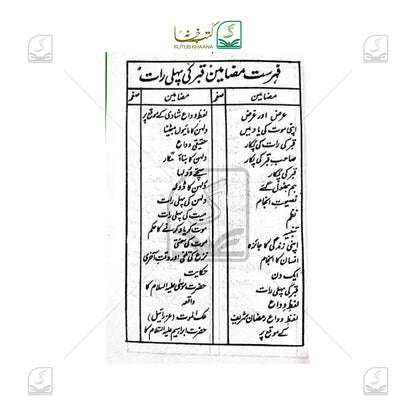 کتب خانہ
KUTUB KHAANA
فہرست مضامین قبر کی پہلی رات
مضامین
صفحہ
عرض اور غرض
اپنی موت کی یاد میں
قبر کی رات کی پکار
صاحب قبر کی پکار
قبر کی پکار
ہم بھول گئے
نصیحت انجام
نظم
تنبیہ
اپنی زندگی کا جائزہ
انسان کا انجام
ایک دن
قبر کی پہلی رات
لفظ وداع
لفظ وداع رمضان شریف
کے موقع پر
مضامین
صفحہ
لفظ وداع شادی کے موقع پر
دلہن کا مائیوں بیٹھنا
حقیقی وداع
دلہن کا بناؤ سنگار
سچے دولہا
دلہن کا ڈولہ
دلہن کی پہلی رات
میت کی پہلی رات
موت کو یاد کرنے کا حکم
موت کی سختی
نزع کی تلخی اور وقت آخری
حکایت
حضرت موسیٰ علیہ السلام کا
واقعہ
ملک الموت (عزرائیل)
حضرت ابراہیم علیہ السلام کا